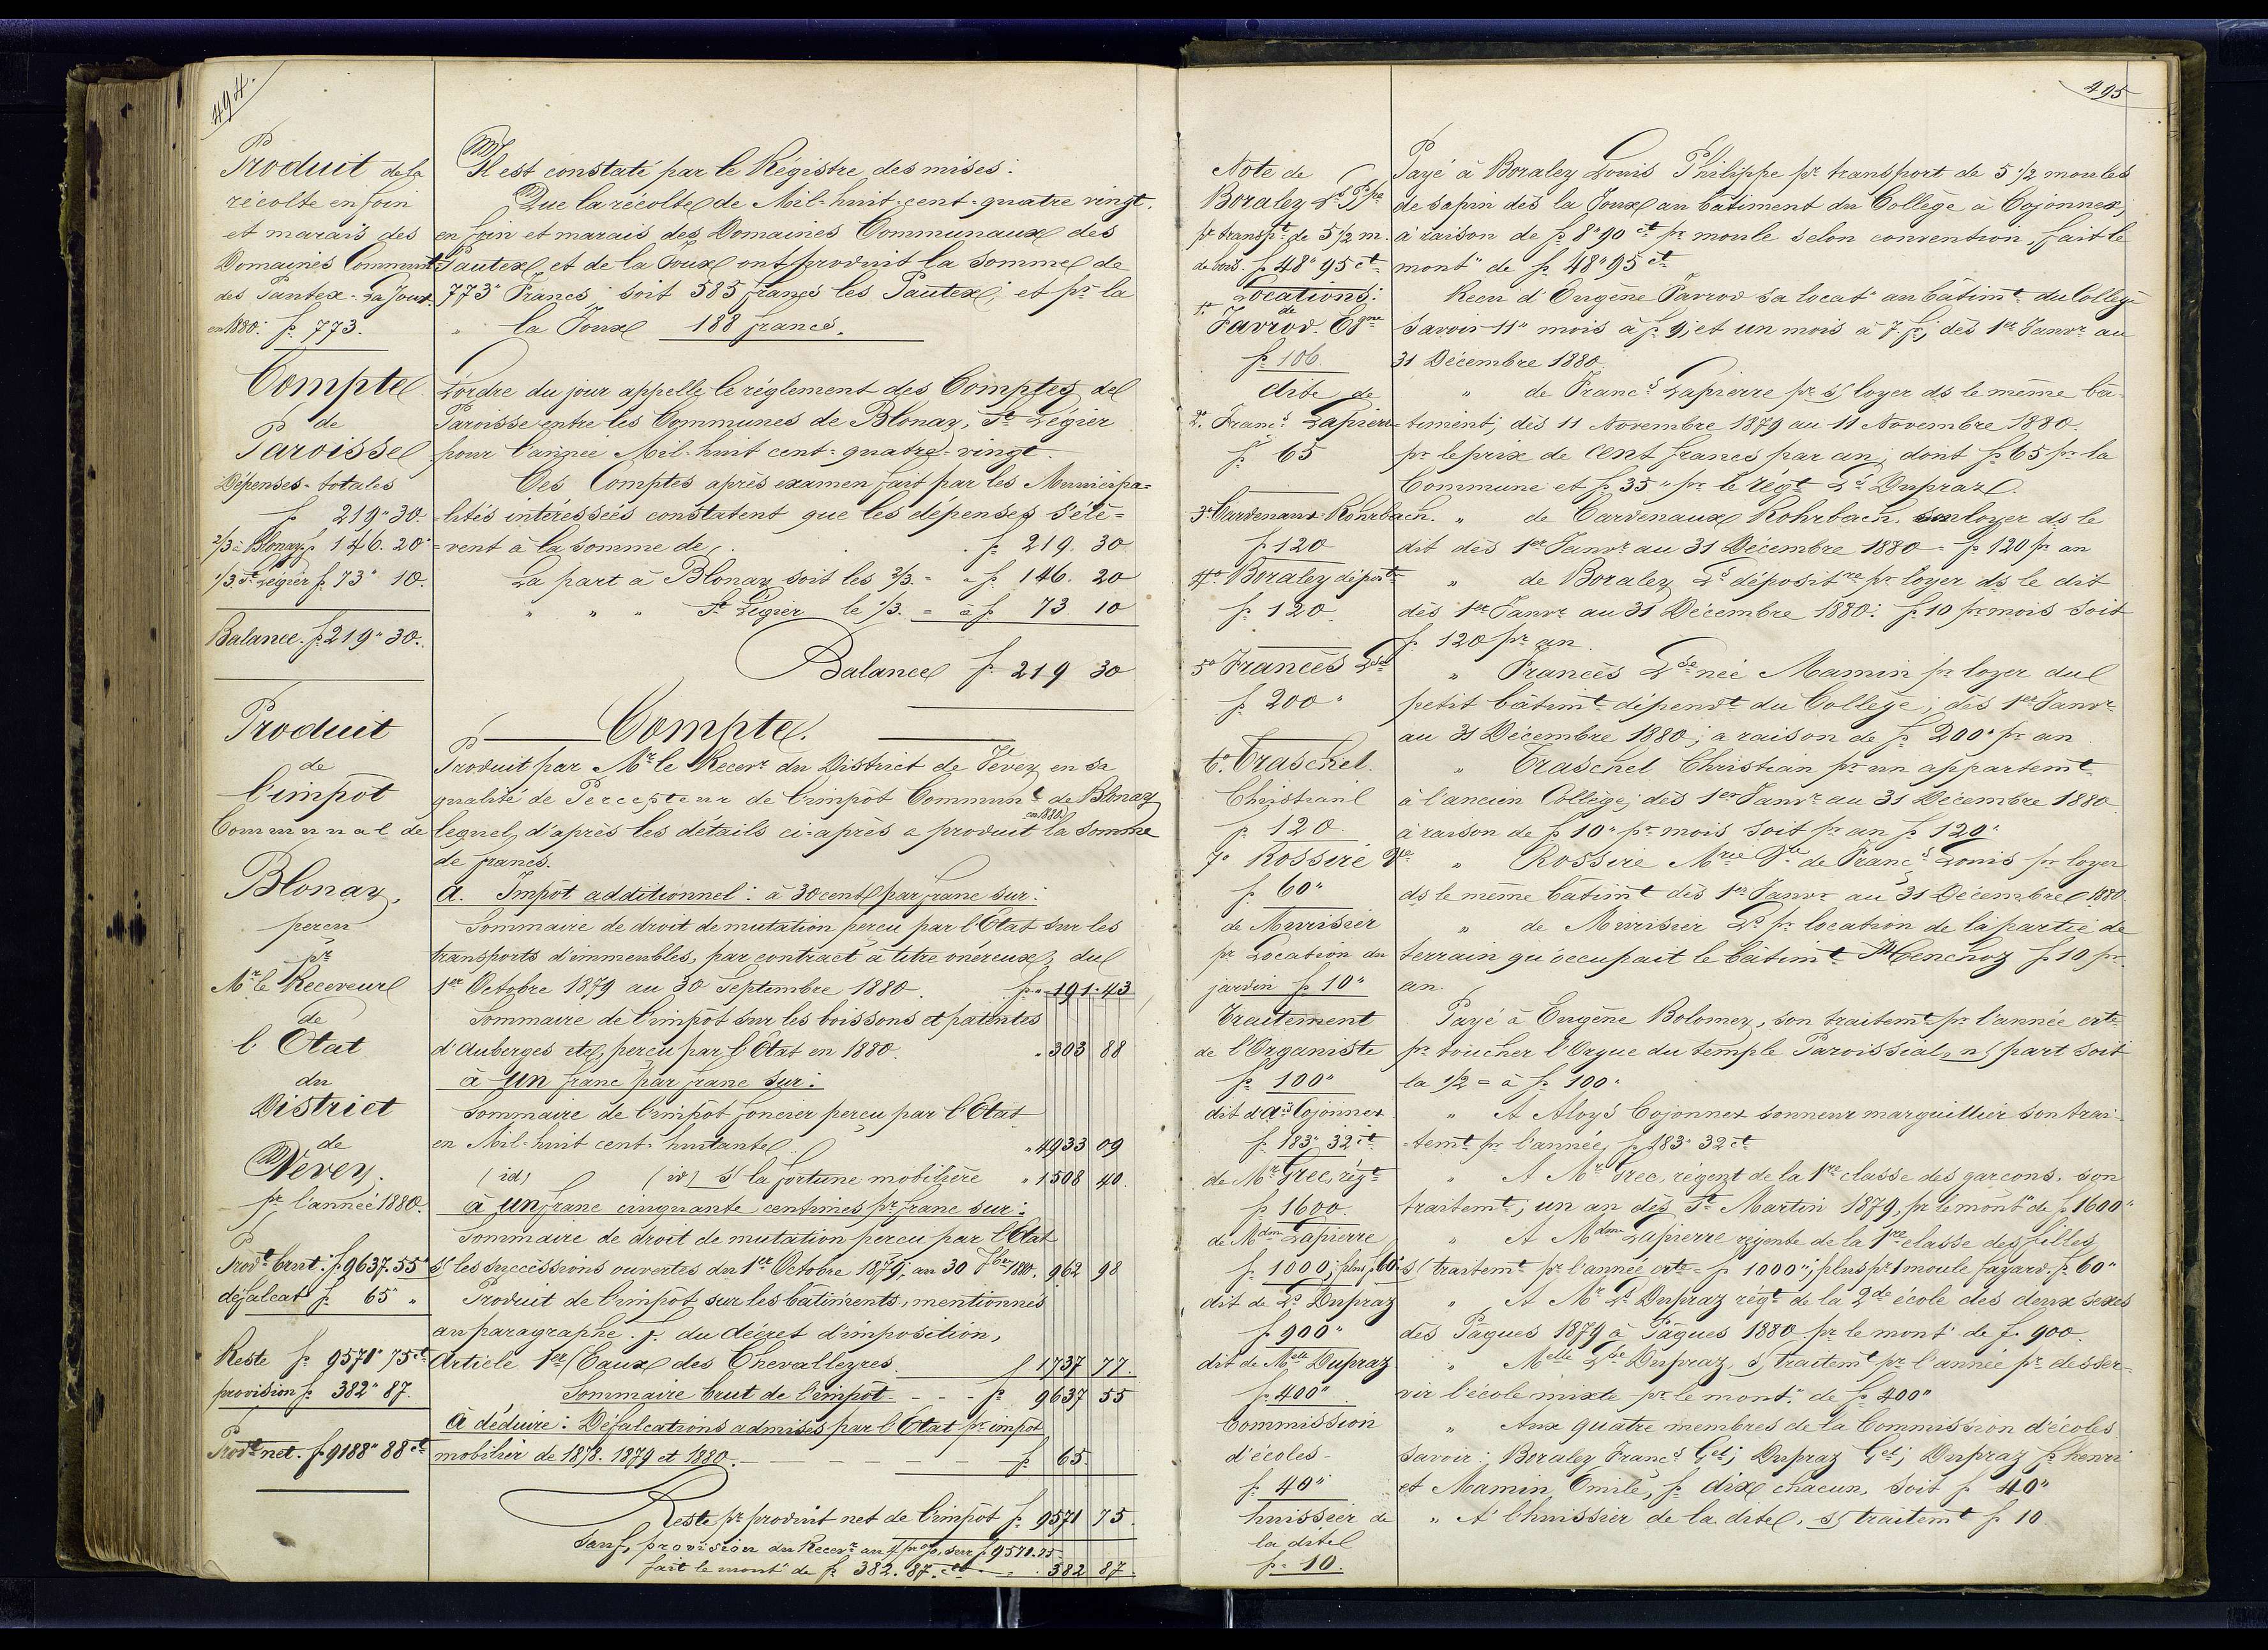 494.
Produit de la
récolte en foin
et marais des
Domaines Communx
des Pautex - La Joux
en 1880: fr. 773.
Compte
de
Paroisse
Dépenses totales
fr. 219" 30.
2/3 à Blonay fr. 146. 20"
1/3 St Légier fr. 73" 10.
Balance. fr. 219" 30.
Produit
de
l'impôt
Communal de
Blonay,
perçu
pr
Mr le Receveur
de
l'Etat
du
District
de
Vevey.
pr l'année 1880.
Prodt brut: fr. 9637. 55"
défalcatn fr. 65" "
Reste fr. 9571" 75 ct
provision fr. 382" 87.
Prodt net. fr. 9188" 88 ct
Il est constaté par le Régistre des mises:
Que la récolte de Mil-huit-cent-quatre vingt,
en foin et marais des Domaines Communaux des
Pautex et de la Joux ont produit la somme de
773" Francs; soit 585 francs les Pautex, et pr la
" la Joux 188 francs.
L'ordre du jour appelle le réglement des Comptes de
Paroisse entre les Communes de Blonay, St Légier
pour l'année Mil-huit cent-quatre-vingt.
Ces Comptes après examen fait par les Municipa=
=lités intéressées constatent que les dépenses s'élè=
=vent à la somme de . . . fr. 219. 30
La part à Blonay soit les 2/3. = à fr. 146. 20
" " " St Légier le 1/3. = à fr. 73 10
Balance fr. 219 30
Compte.
Produit par Mr le Recevr du District de Vevey en sa
qualité de Percepteur de l'impôt Communl de Blonay
en 1880
lequel, d'après les détails ci-après a produit la somme
de francs.
A. Impôt additionnel: à 30 cent par franc sur:
Sommaire de droit de mutation perçu par l'Etat sur les
transports d'immeubles, par contract à titre onéreux, du
1er Octobre 1879 au 30 Septembre 1880. fr. " 191. 43
Sommaire de l'impôt sur les boissons et patentes
d'Auberges etc, perçu par l'Etat en 1880. " 303 88
à un franc par franc sur:
Sommaire de l'impôt foncier perçu par l'Etat
en Mil-huit cent-huitante. " 4933 09
(id) (id) s/ la fortune mobilière " 1508 40.
à un franc cinquante centimes pr franc sur:
Sommaire de droit de mutation perçu par l'Etat
s/ les successions ouvertes du 1er Octobre 1879, au 30 7bre 1880. 962 98
Produit de l'impôt sur les batiments, mentionnés
au paragraphe . f. du décret d'imposition,
Article 1er (Eaux des Chevalleyres. f 1737 77.
Sommaire brut de l'impôt - - - fr 9637 55
à déduire: Défalcations admises par l'Etat pr impôt
mobilier de 1878. 1879 et 1880. - - - - - fr. 65.
Reste pr produit net de l'impôt fr. 9571 75.
Sauf, provision du Recevr au 4 pr %, sur fr. 9571.75
fait le mont de fr. 382. 87. ct - - - 382 87.
495
Note de
Boraley Ls Ppe
pr transpt de 5 1/2 m.
de bois. fr. 48" 95 ct
Locations:
de
1o Favrod. Egne
fr. 106
dite de
2o Francs Lapierre
fr. 65
3o Cardenaux-Rohrbach.
fr. 120
4o Boraley déposit
fr. 120.
5o Francès Lse
fr. 200"
6o Traschel.
Christian
fr. 120.
7o Rossire Vve
fr. 60"
de Murisier
pr Location du
jardin fr. 10"
Traitement
de l'Organiste
fr. 100"
dit d'As Cojonnex
fr. 183" 32 ct
de Mr Grec, régt
fr 1600.
de Mdm Lapierre
fr. 1000; plus fr 60"
dit de Ls Dupraz
fr. 900"
dit de Melle Dupraz
fr. 400"
Commission
d'écoles -
fr. 40"
huissier de
la dite
fr. 10.
Payé à Boraley Louis Philippe pr transport de 5 1/2 moules
de sapin dès la Joux au bâtiment du Collège à Cojonnex,
à raison de fr. 8" 90 ct pr moule selon convention, fait le
mont" de fr. 48" 95 ct
Reçu d'Eugène Favrod sa locatn au bâtimt du Collège
savoir 11" mois à fr. 9; et un mois à 7. fr; dès 1er Janvr au
31 Décembre 1880.
" de Francs Lapierre pr s/ loyer ds le même bâ-
=timent; dès 11 Novembre 1879 au 11 Novembre 1880.
pr le prix de cent francs par an; dont fr. 65 pr la
Commune et fr. 35" pr le régt Ls Dupraz.
" de Cardenaux Rohrbach, son loyer ds le
dit dès 1er Janvr au 31 Décembre 1880 = fr. 120 pr an
" de Boraley Ls déposit're pr loyer ds le dit
dès 1er Janvr au 31 Décembre 1880: fr. 10 pr mois soit
fr. 120 pr an.
" Francès Lse née Mamin pr loyer du
petit bâtimt dépendt du Collège; dès 1er Janvr
au 31 Décembre 1880; à raison de fr. 200" pr an
" Traschel Christian pr un appartemt
à l'ancien Collège; dès 1er Janvr au 31 Décembre 1880
à raison de fr. 10" pr mois soit pr an fr. 120"
" Rossire Mrie Vve de Francs Louis pr loyer
ds le même bâtimt dès 1er Janvr au 31 Décembre 1880
" de Murisier Ls pr location de la partie de
terrain qu'occupait le bâtimt Henchoz fr. 10 pr
an.
Payé à Eugène Bolomey, son traitemt pr l'année crte
pr toucher l'Orgue du temple Paroissial, n/ part soit
la 1/2 = à fr. 100"
" A Aloys Cojonnex sonneur marguillier son trai-
-temt pr l'année, fr. 183" 32 ct
" A Mr Grec, régent de la 1re classe des garçons, son
traitemt; un an dès St Martin 1879, pr le mont" de fr 1600"
" A Mdm Lapierre régente de la 1re classe des filles
s/ traitemt pr l'année crte = fr 1000"; plus pr 1 moule fayard, fr. 60"
" A Mr Ls Dupraz régt de la 2de école des deux sexes
dès Pâques 1879 à Pâques 1880 pr le mont de f. 900.
" Melle Lse Dupraz, s/ traitemt pr l'année pr desser=
vir l'école mixte pr le mont" de fr. 400"
" Aux quatre membres de la Commission d'écoles
savoir: Boraley Francs Gel; Dupraz Gel; Dupraz fs henri
et Mamin Emile, fr. dix chacun, soit fr 40"
" A l'huissier de la dite, s/ traitemt fr 10.